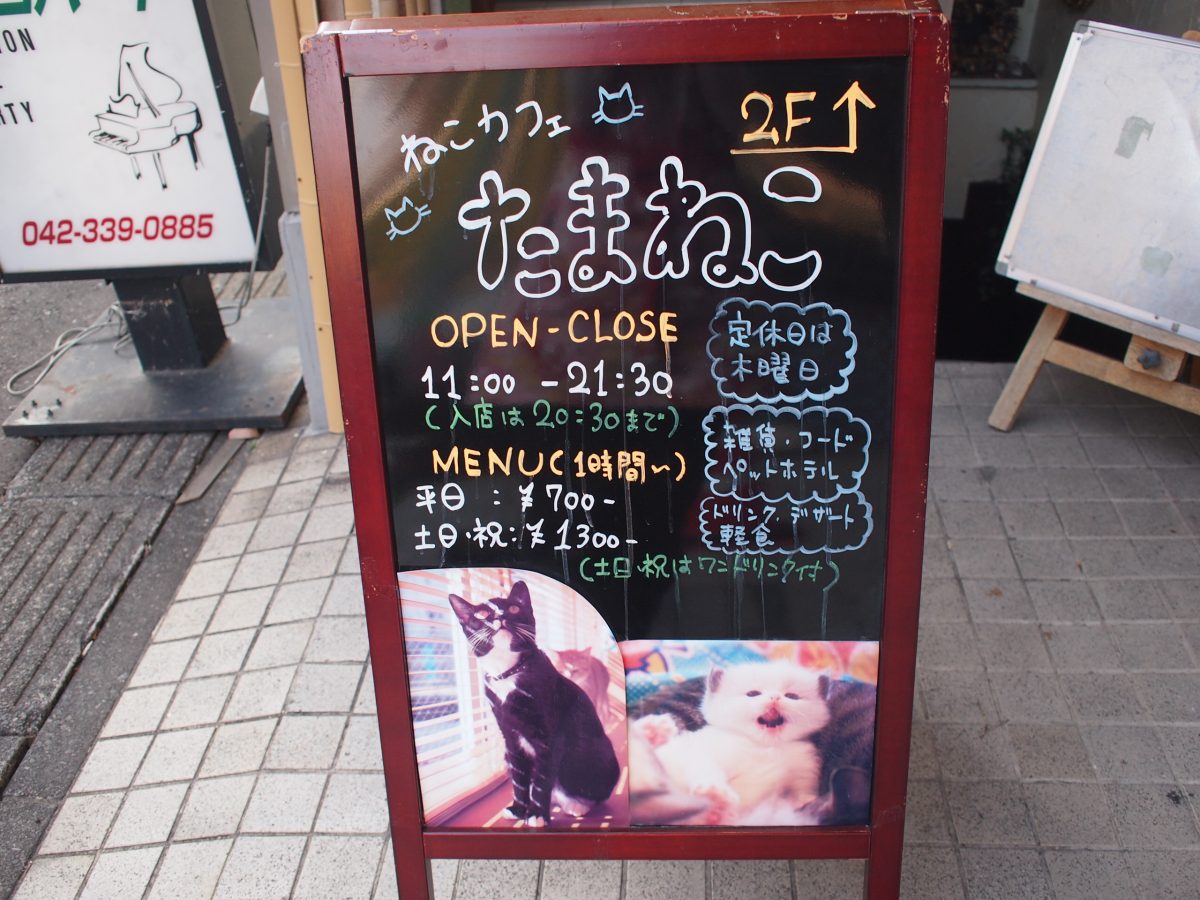 ION
RTY
042-339-0885
ねこカフェ
2F↑
たまねこ
OPEN-CLOSE
11:00 -21:30
(入店は20:30まで)
定休日は
木曜日
MENU(1時間〜)
平日 : ¥700-
土日・祝:¥1300-
(土日・祝はワンドリンク付)
雑貨・フード
ペットホテル
ドリンク・デザート
軽食